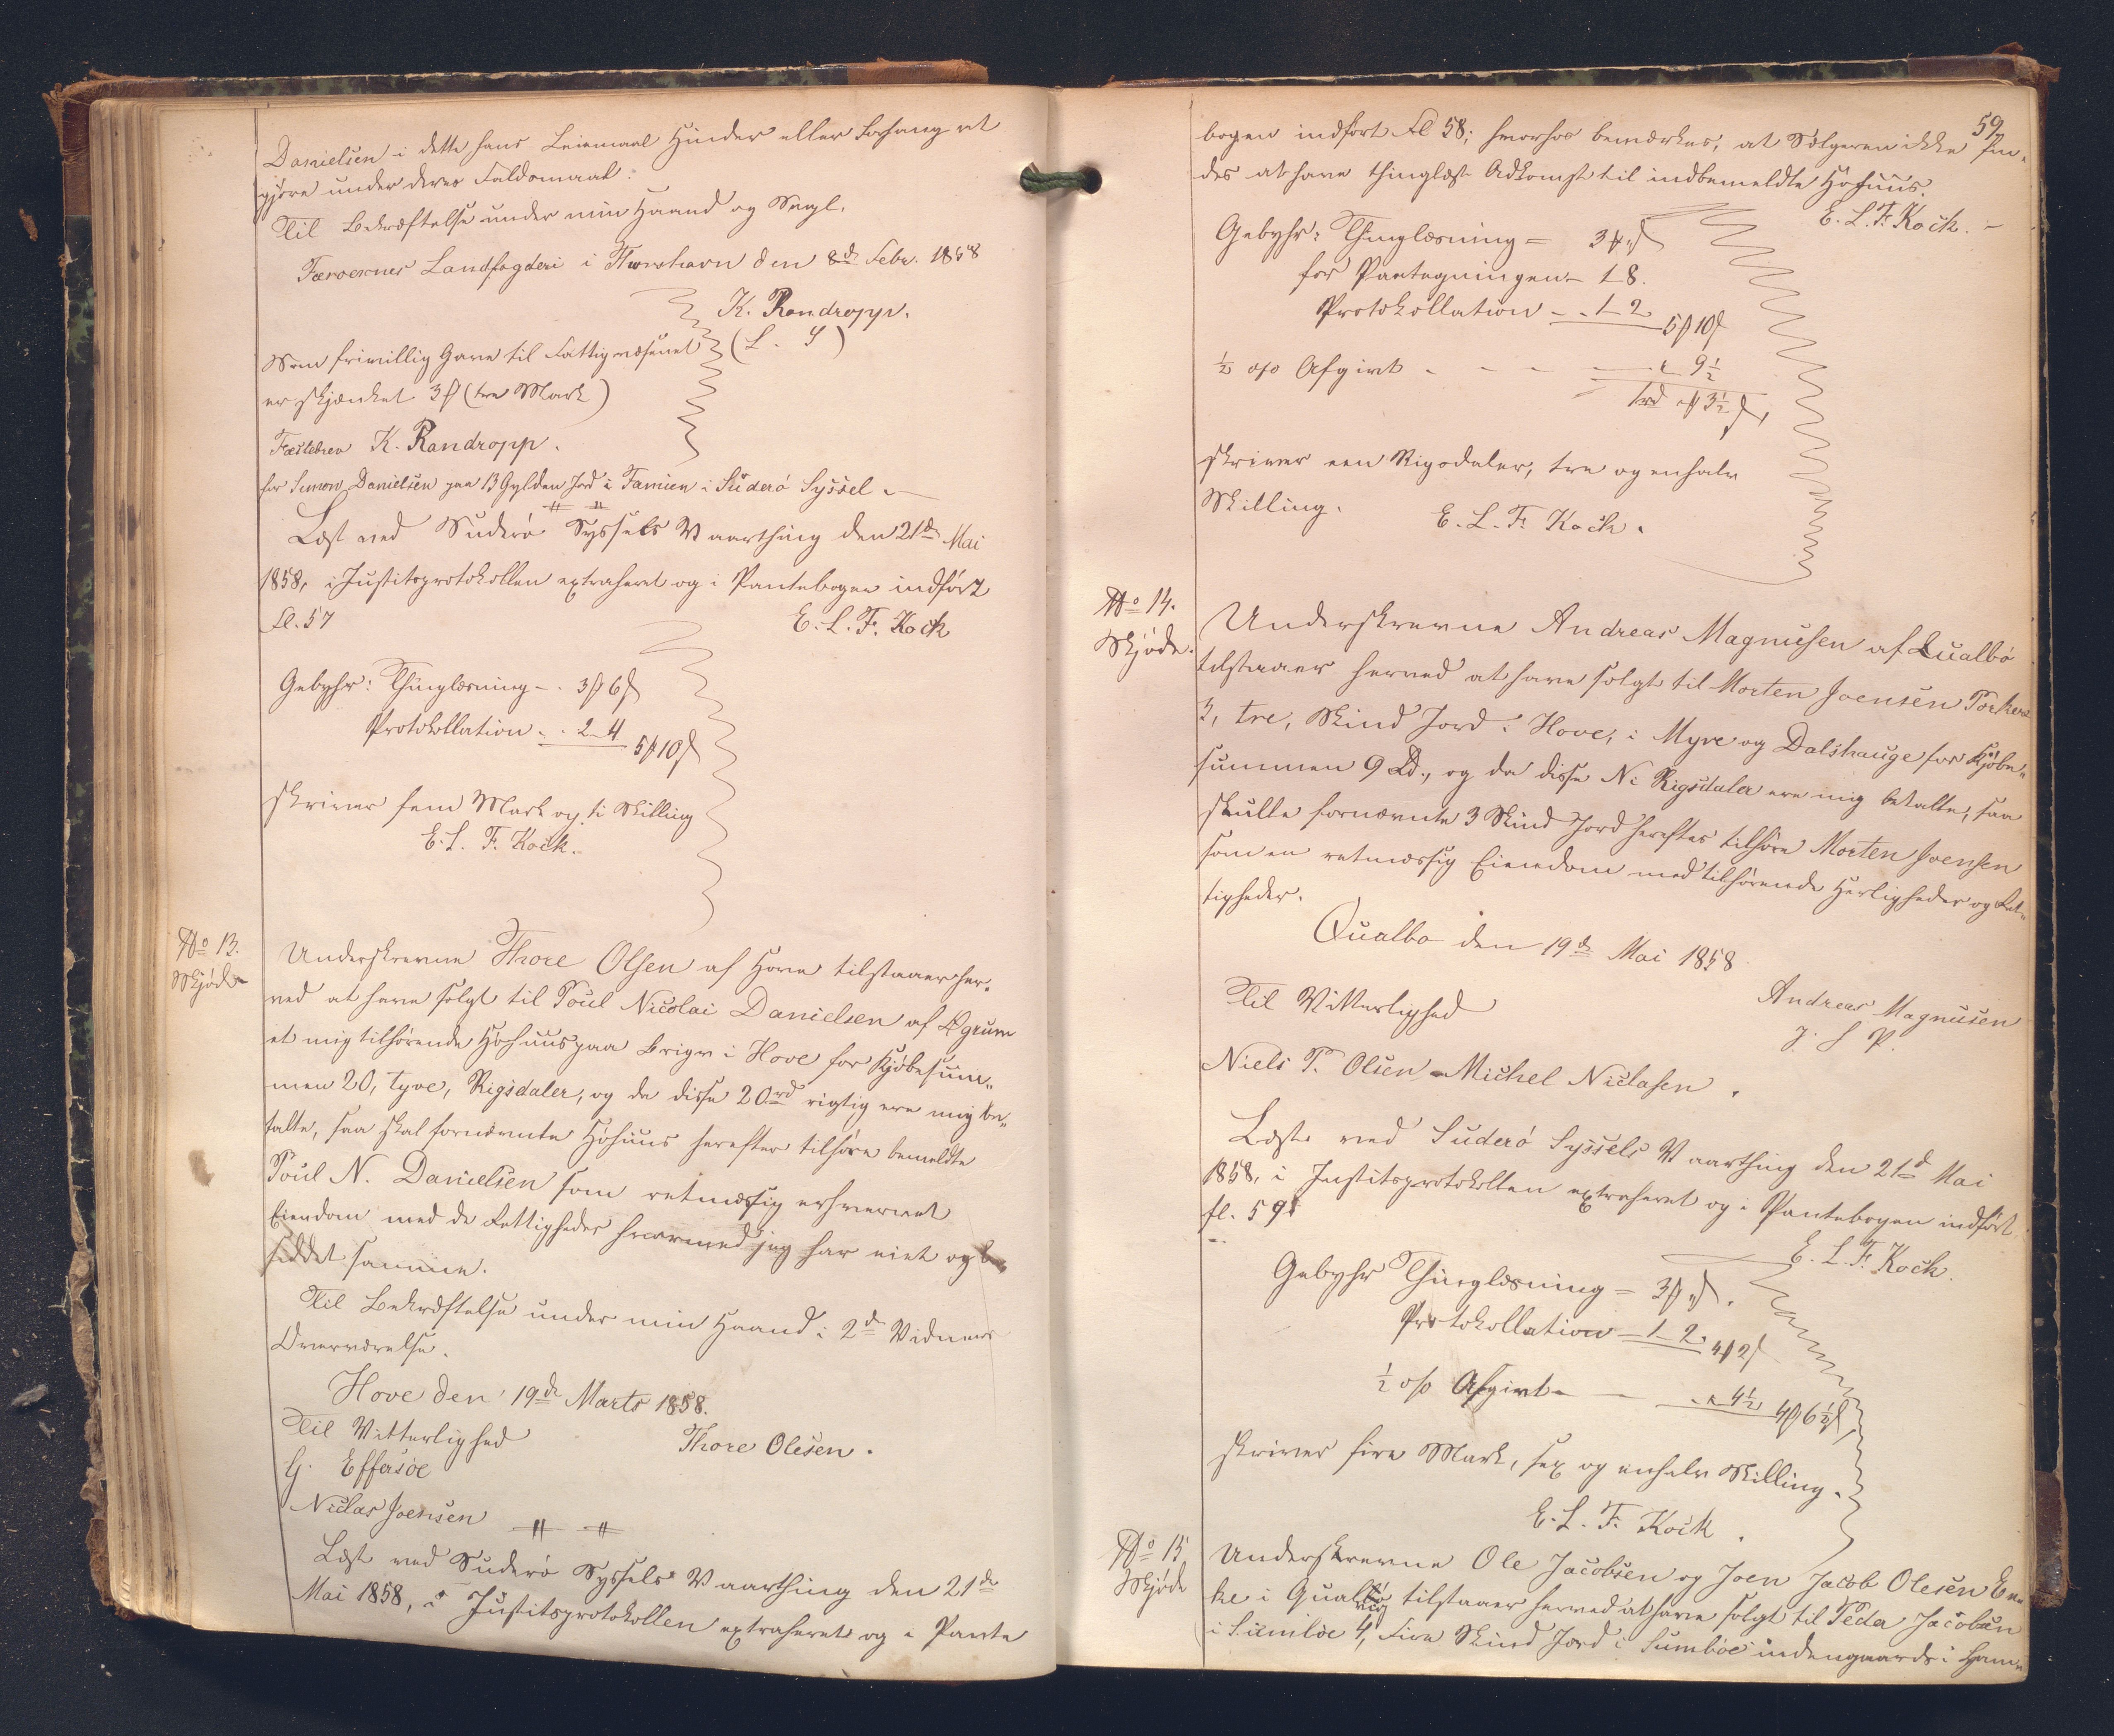 Danielsen i dette hans Leiemaal Hinder eller Forfang at
gjøre under deres Faldsmaal.
Til Bekræftelse under min Haand og Segl.
Færoernes Landfogderi i Thorshavn den 8de Febr. 1858
K. Randropp.
(L. S)
Som frivillig Gave til Fattigvæsenet
er skjænket 3 (tre Mark)
Fæstebrev K. Randropp.
for Simon Danielsen paa 13 Gylden Jord i Famien i Suderö Syssel.
Læst ved Suderö Syssels Vaarthing den 21de Mai
1858, i Justitsprotokollen extraheret og i Pantebogen indfört
Fl. 57
E. L. F. Kock
Gebyhr: Thinglæsning - . 3 6
Protokollation - . 2 - 4 5 10
skriver fem Mark og ti Skilling
E. L. F. Kock.
No 13.
Skjöde
Underskrevne Thore Olsen af Hove tilstaaer her-
ved at have solgt til Poul Nicolai Danielsen af Øgrum
et mig tilhörende Höhuus paa i Hove for Kjöbesum-
men 20, tyve, Rigsdaler, og da disse 20rd rigtig ere mig be-
talte, saa skal fornævnte Höhuus herefter tilhöre bemeldte
Poul N. Danielsen som retmæssig erhvervet
Eiendom med de Rettigheder hvormed jeg har eiet og be-
siddet samme.
Til Bekræftelse under min Haand i 2de Vidners
Overværelse.
Hove den 19de Marts 1858.
Til Vitterlighed
Thore Olesen.
G. Effersöe
Niclas Joensen
Læst ved Suderö Syssels Vaarthing den 21de
Mai 1858, i Justitsprotokollen extraheret og i Pante
59
bogen indfört Fl 58; hvorhos bemærkes, at Sælgeren ikke fin-
des at have thinglæst Adkomst til indbemeldte Höhuus.
E. L. F. Kock.
Gebyhr: Thinglæsning = 3
for Paategningen - 1 8.
Protokollation - - 1 - 2 5 10
½ o/o Afgivt - - - - 9½
1rd 3½
skriver een Rigsdaler, tre og en halv
Skilling.
E. L. F. Kock.
No 14.
Skjöde.
Underskrevne Andreas Magnusen af Qualbö
tilstaaer herved at have solgt til Morten Joensen
3, tre, Skind Jord i Hove, i Myre og Dalshauge for Kjöbe-
summen 9 Rd., og da disse Ni Rigsdaler ere mig betalte, saa
skulle fornævnte 3 Skind Jord herefter tilhöre Morten Joensen
som en retmæssig Eiendom med tilhörende Herligheder og Ret-
tigheder.
Qualbo den 19de Mai 1858
Til Vitterlighed
Andreas Magnusen
J. S P.
Niels P. Olsen - Michel Niclasen.
Læst ved Suderö Syssels Vaarthing den 21de Mai
1858, i Justitsprotokollen extraheret og i Pantebogen indfört
fl. 59
E. L. F. Kock.
Gebyhr Thinglæsning = 3
Protokollation - 1 - 2 4 2
½ o/o Afgivt - - 4½ 4 6½
skriver fire Mark, sex og en halv Skilling.
E. L. F. Kock.
No 15
Skjöde
Underskrevne Ole Jacobsen og Joen Jacob Olesen
i tilstaaer herved at have solgt til Peder Jacobsen
i Sumböe 4, Fire Skind Jord i Sumböe indengaards i